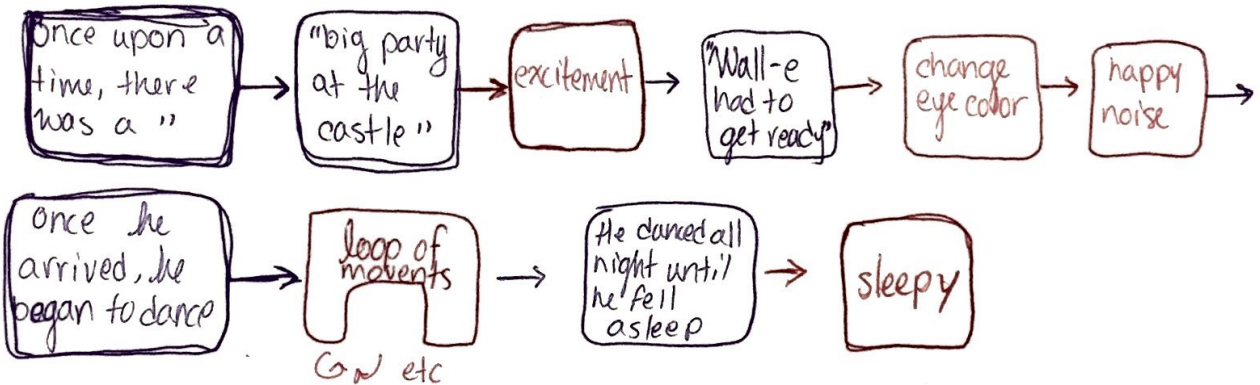 once upon a
time, there
was a "
"big party
at the
castle"
excitement
"Wall-e
had to
get ready"
change
eye color
happy
noise
once he
arrived, he
began to dance
loop of
movents
etc
He danced all
night until
he fell
asleep
sleepy